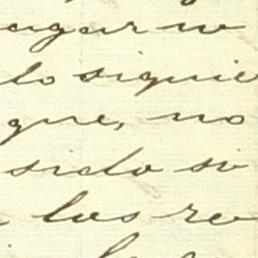 lo siguie
que, no
sido si
los re